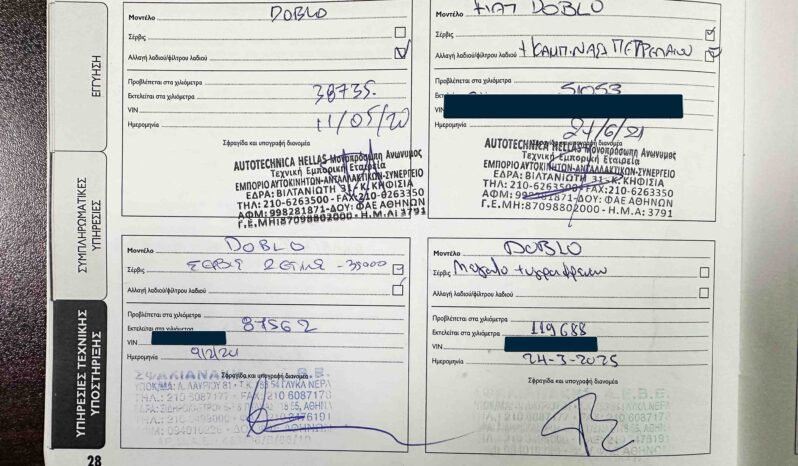 ΕΓΓΥΗΣΗ
ΣΥΜΠΛΗΡΩΜΑΤΙΚΕΣ
ΥΠΗΡΕΣΙΕΣ
ΥΠΗΡΕΣΙΕΣ ΤΕΧΝΙΚΗΣ
ΥΠΟΣΤΗΡΙΞΗΣ
28
Μοντέλο DOBLO
Σέρβις
Αλλαγή λαδιού/φίλτρου λαδιού
Προβλέπεται στα χιλιόμετρα
Εκτελείται στα χιλιόμετρα 38735
VIN
Ημερομηνία 11/05/20
Σφραγίδα και υπογραφή διανομέα
AUTOTECHNICA HELLAS Μονοπρόσωπη Ανώνυμος
Τεχνική Εμπορική Εταιρεία
ΕΜΠΟΡΙΟ ΑΥΤΟΚΙΝΗΤΩΝ-ΑΝΤΑΛΛΑΚΤΙΚΩΝ-ΣΥΝΕΡΓΕΙΟ
ΕΔΡΑ: ΒΙΛΤΑΝΙΩΤΗ 31 - Κ. ΚΗΦΙΣΙΑ
ΤΗΛ: 210-6263500 - FAX: 210-6263350
ΑΦΜ: 998281871-ΔΟΥ: ΦΑΕ ΑΘΗΝΩΝ
Γ.Ε.ΜΗ: 87098802000 - Η.Μ.Α: 3791
Μοντέλο ΦΙΑΤ DOBLO
Σέρβις
Αλλαγή λαδιού/φίλτρου λαδιού + ΚΑΜΠΙΝΑΣ ΠΕΤΡΕΛΑΙΟΥ
Προβλέπεται στα χιλιόμετρα
Εκτελείται στα χιλιόμετρα 51053
VIN
Ημερομηνία 21/6/21
Σφραγίδα και υπογραφή διανομέα
AUTOTECHNICA HELLAS Μονοπρόσωπη Ανώνυμος
Τεχνική Εμπορική Εταιρεία
ΕΜΠΟΡΙΟ ΑΥΤΟΚΙΝΗΤΩΝ-ΑΝΤΑΛΛΑΚΤΙΚΩΝ-ΣΥΝΕΡΓΕΙΟ
ΕΔΡΑ: ΒΙΛΤΑΝΙΩΤΗ 31 - Κ. ΚΗΦΙΣΙΑ
ΤΗΛ: 210-6263500 - FAX: 210-6263350
ΑΦΜ: 998281871-ΔΟΥ: ΦΑΕ ΑΘΗΝΩΝ
Γ.Ε.ΜΗ: 87098802000 - Η.Μ.Α: 3791
Μοντέλο DOBLO
Σέρβις ΣΕΡΒΙΣ
Αλλαγή λαδιού/φίλτρου λαδιού
Προβλέπεται στα χιλιόμετρα
Εκτελείται στα χιλιόμετρα 87562
VIN
Ημερομηνία
Σφραγίδα και υπογραφή διανομέα
ΥΠΟΚ/ΜΑ: Λ. ΛΑΥΡΙΟΥ 81 - Τ.Κ. ΓΛΥΚΑ ΝΕΡΑ
Μοντέλο DOBLO
Σέρβις Μεγάλο
Αλλαγή λαδιού/φίλτρου λαδιού
Προβλέπεται στα χιλιόμετρα
Εκτελείται στα χιλιόμετρα 119688
VIN
Ημερομηνία 24-3-2025
Σφραγίδα και υπογραφή διανομέα